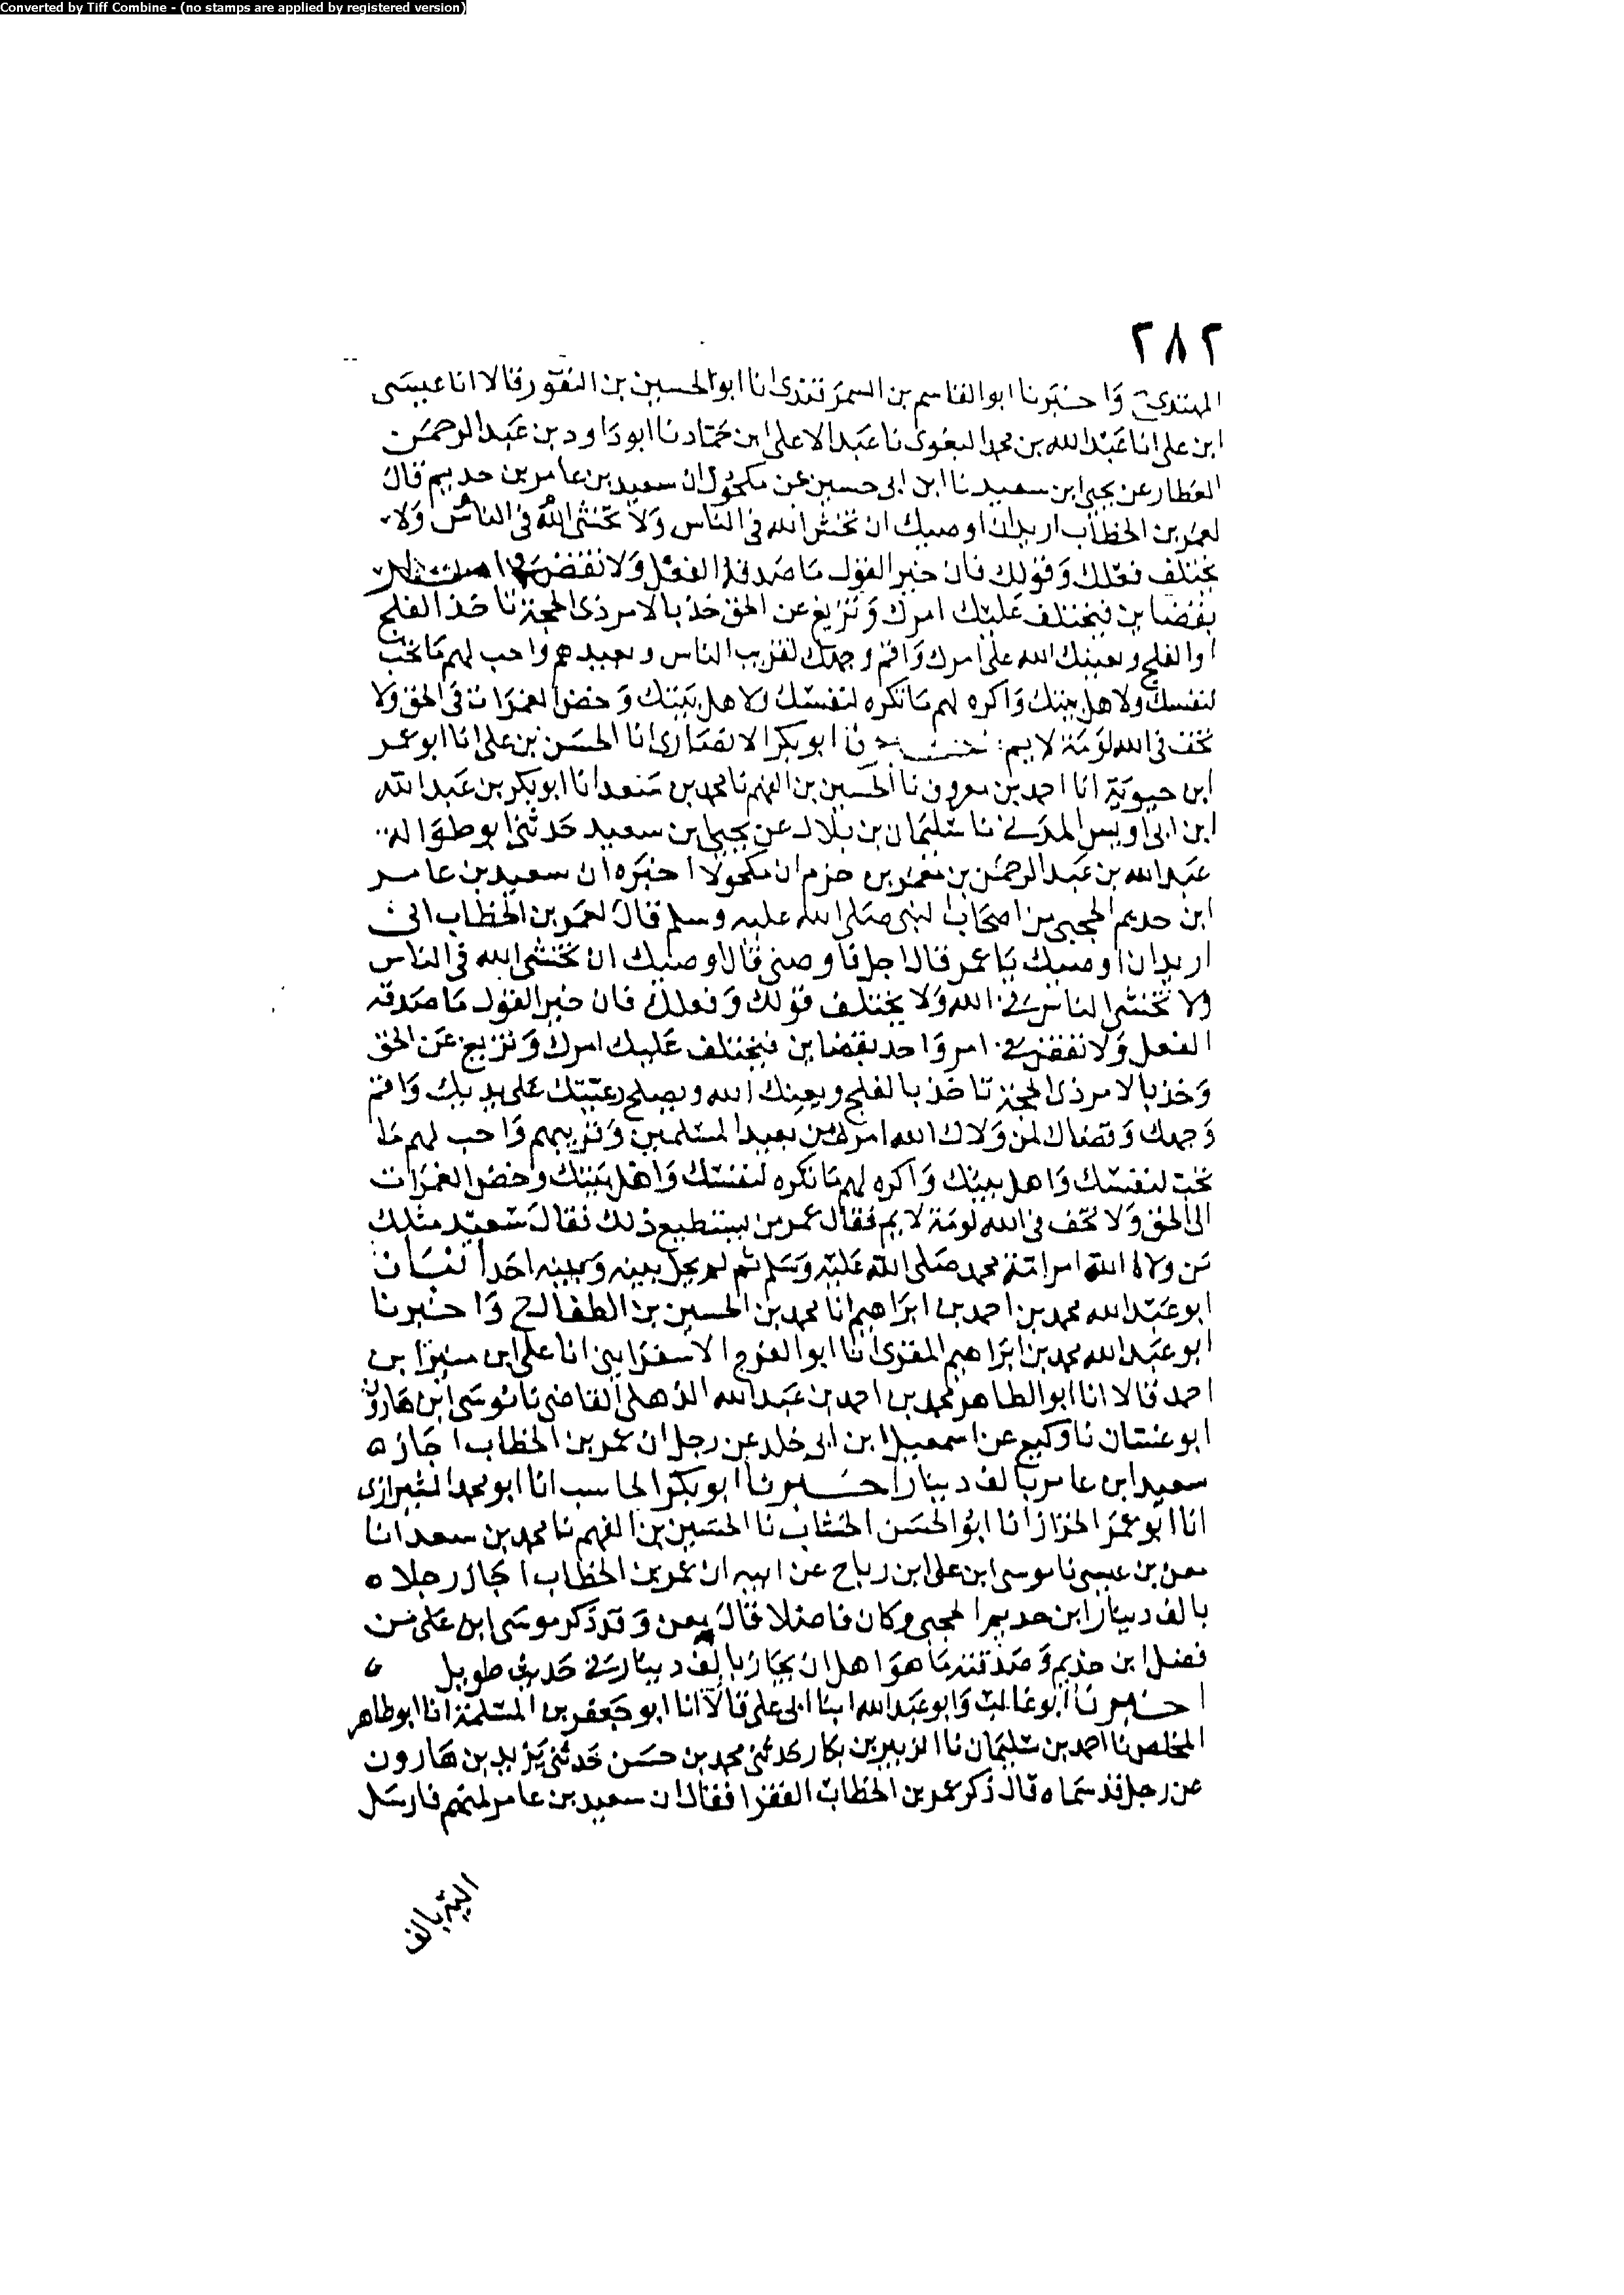 Converted by Tiff Combine - (no stamps are applied by registered version)
٢٨٢
المهتدي وَاخبَرنا ابوالقاسم بن السمرَقندى انا ابوالحسين بن النقور قالا انا عيسَى
ابن على انا عَبْدالله بن محمد البغوى نا عبدالاعلى ابن حمّاد نا ابو دَاود بن عَبدالرحمَن
العَطار عن يحيى ابن سعيد نا ابن ابى حسين عن مكحُول ان سعيد بن عامر بن حديم قال
لعمَر بن الخطاب اريد ان اوصيك ان تخش الله فى الناس وَلا تخشى الله فى الناس وَلا
يختلف فعلك وَقولك فان خير القول مَا صَدقه الفعل وَلا تقض فى امر
بقضاين فيختلف عَليْك امرك وَتزيغ عن الحق خذ بالامر ذى الحجة تاخذ الفلج
اوالفلج ويعينك الله على امرك وَاقم وجهك لقريب الناس وبعيدهم واحب لهم مَا تحب
لنفسك ولاهل بيتك وَاكره لهم مَا تكره لنفسك ولاهل بَيتك وَخض الغمَرَات فى الحق وَلا
تخف فى الله لوَمَة لايم نا ابوبكر الانصَارى انا الحسَن بن على انا ابو عمر
ابن حيويَة انا احمد بن معروف نا الحسَين بن الفهم نا محمد بن سَعد انا ابوبكر بن عَبدالله
ابن ابى اويس المدَني نا سليمَان بن بلال عن يحيى بن سعيد حَدثنى ابو طوَاله
عَبدالله بن عَبدالرحمَن بن معمَر بن حزم ان مكحولا اخبَره ان سعيد بن عامر
ابن حديم الجمحى من اصحَاب النبى صَلى الله عليه وسلم قال لعمَر بن الخطاب انى
اريد ان اوصيك يَا عمر قال اجل فاوصنى قال اوصيك ان تخشى الله فى الناس
ولا تخشى الناس فى الله وَلا يختلف قولك وَفعلك فان خير القول مَا صَدقه
الفعل وَلا تقض فى امر وَاحد بقضاين فيختلف عَليك امرك وَتزيغ عَن الحق
وَخذ بالامر ذى الحجة تاخذ بالفلج ويعينك الله ويصلح رعيّتك عَلى يديك وَاقم
وَجهك وَقضاك لمن وَلاك الله امره من بعيد المسْلمين وَقريبهم وَاحب لهم مَا
تحب لنفسك وَاهل بيتك وَاكره لهم مَا تكره لنفسك وَاهل بَيتك وخض الغمرَات
الى الحق وَلا تخف فى الله لومَة لايم فقال عمر من يستطيع ذلك فقال سَعيد مثلك
مَن ولاه الله امر امّة محمد صَلى الله عَليه وَسَلم ثم لم يحل بينه وَبينه احَد
ابو عَبْدالله محمد بن احمد بن ابرَاهيم انا محمد بن الحسين بن الطفال ح وَاخبرنا
ابو عبدالله محمد بن ابرَاهيم المقرى انا ابوالفرج الاسفرَايني انا على ابن منير ابن
احمد قالا انا ابوالطاهر محمد بن احمد بن عَبدالله الذهلى القاضى نا مُوسَى ابن هَارون
ابو غسّان نا وكيع عن اسمعيل ابن ابى خلد عن رجل ان عمر بن الخطاب اجَازه
سعيد ابن عامر بالف دينار اخبرنا ابوبكر الحاسب انا ابو محمد الشيرازى
انا ابو عمَر الخزاز انا ابو الحسَن الخشاب نا الحسَين بن الفهم نا محمد بن سعد انا
معن بن عيسى نا موسى ابن على ابن رباح عن ابيه ان عمر بن الخطاب اجَاز رجلا ه
بالف دينار ابن حديم الجمحى وكان فاضلا قال معن وَقد ذكر موسَى ابن عَلى من
فضل ابن حذيم وَصَدقته مَا هوَ اهل ان يجَاز بالف دينار فى حَديث طويل ه
اخبرنا ابو غالب وَابو عَبدالله ابنا ابى على قالا انا ابو جَعفر بن المسْلمَة انا ابو طاهر
المخلص نا احمد بن سُليمَان نا الزبير بن بكار حَدثنى محمد بن حسَن حَدثنى يَزيد بن هَارون
عن رجل قد سَماه قال ذكر عمر بن الخطابّ الفقرا فقال ان سعيد بن عامر لمنهم فارسَل
اليه بالف